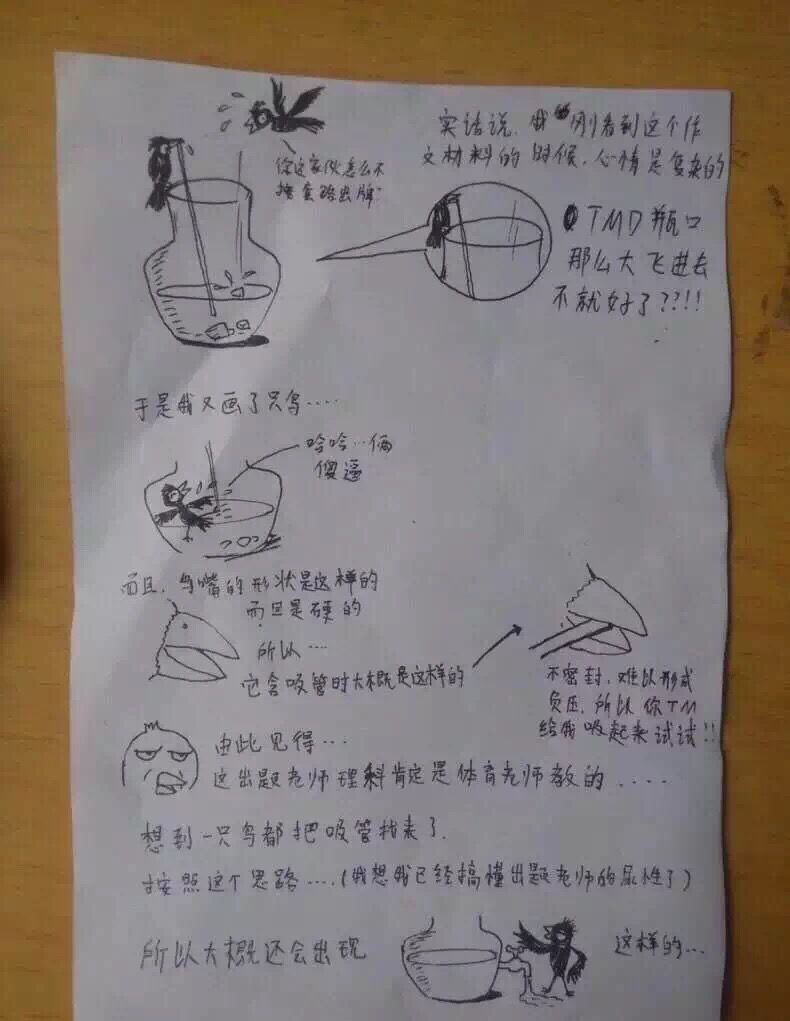 实话说，我刚看到这个作
文材料的时候，心情是复杂的
你这家伙怎么不
按套路出牌?
TMD 瓶口
那么大飞进去
不就好了???!!!
于是我又画了只鸟....
哈哈…俩
傻逼
而且，鸟嘴的形状是这样的
而且是硬的
所以…
它含吸管时大概是这样的
不密封，难以形成
负压，所以你TM
给我吸起来试试!!
由此见得…
这出题老师理科肯定是体育老师教的....
想到一只鸟都把吸管找来了，
按照这个思路....(我想我已经搞懂出题老师的尿性了)
所以大概还会出现
这样的…